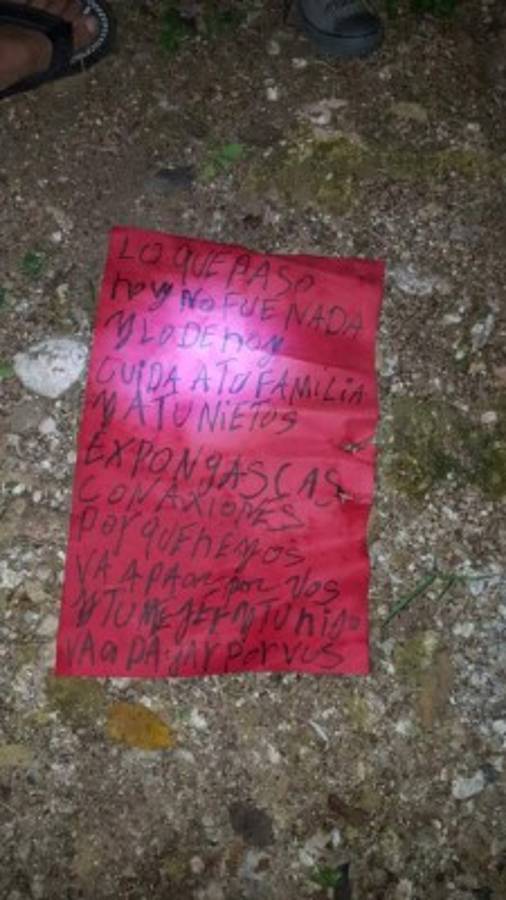 LO QUE PASO
hoy No FUE NADA
y LO DE hoy
CUIDA A TU FAMILIA
y A TU NIETOS
EXPONgAS CAS
CON AXIONES
por QUE hEyOS
VA A PAar por Vos
y TU MEJEr y TU hijo
VA a PAjAr por vos